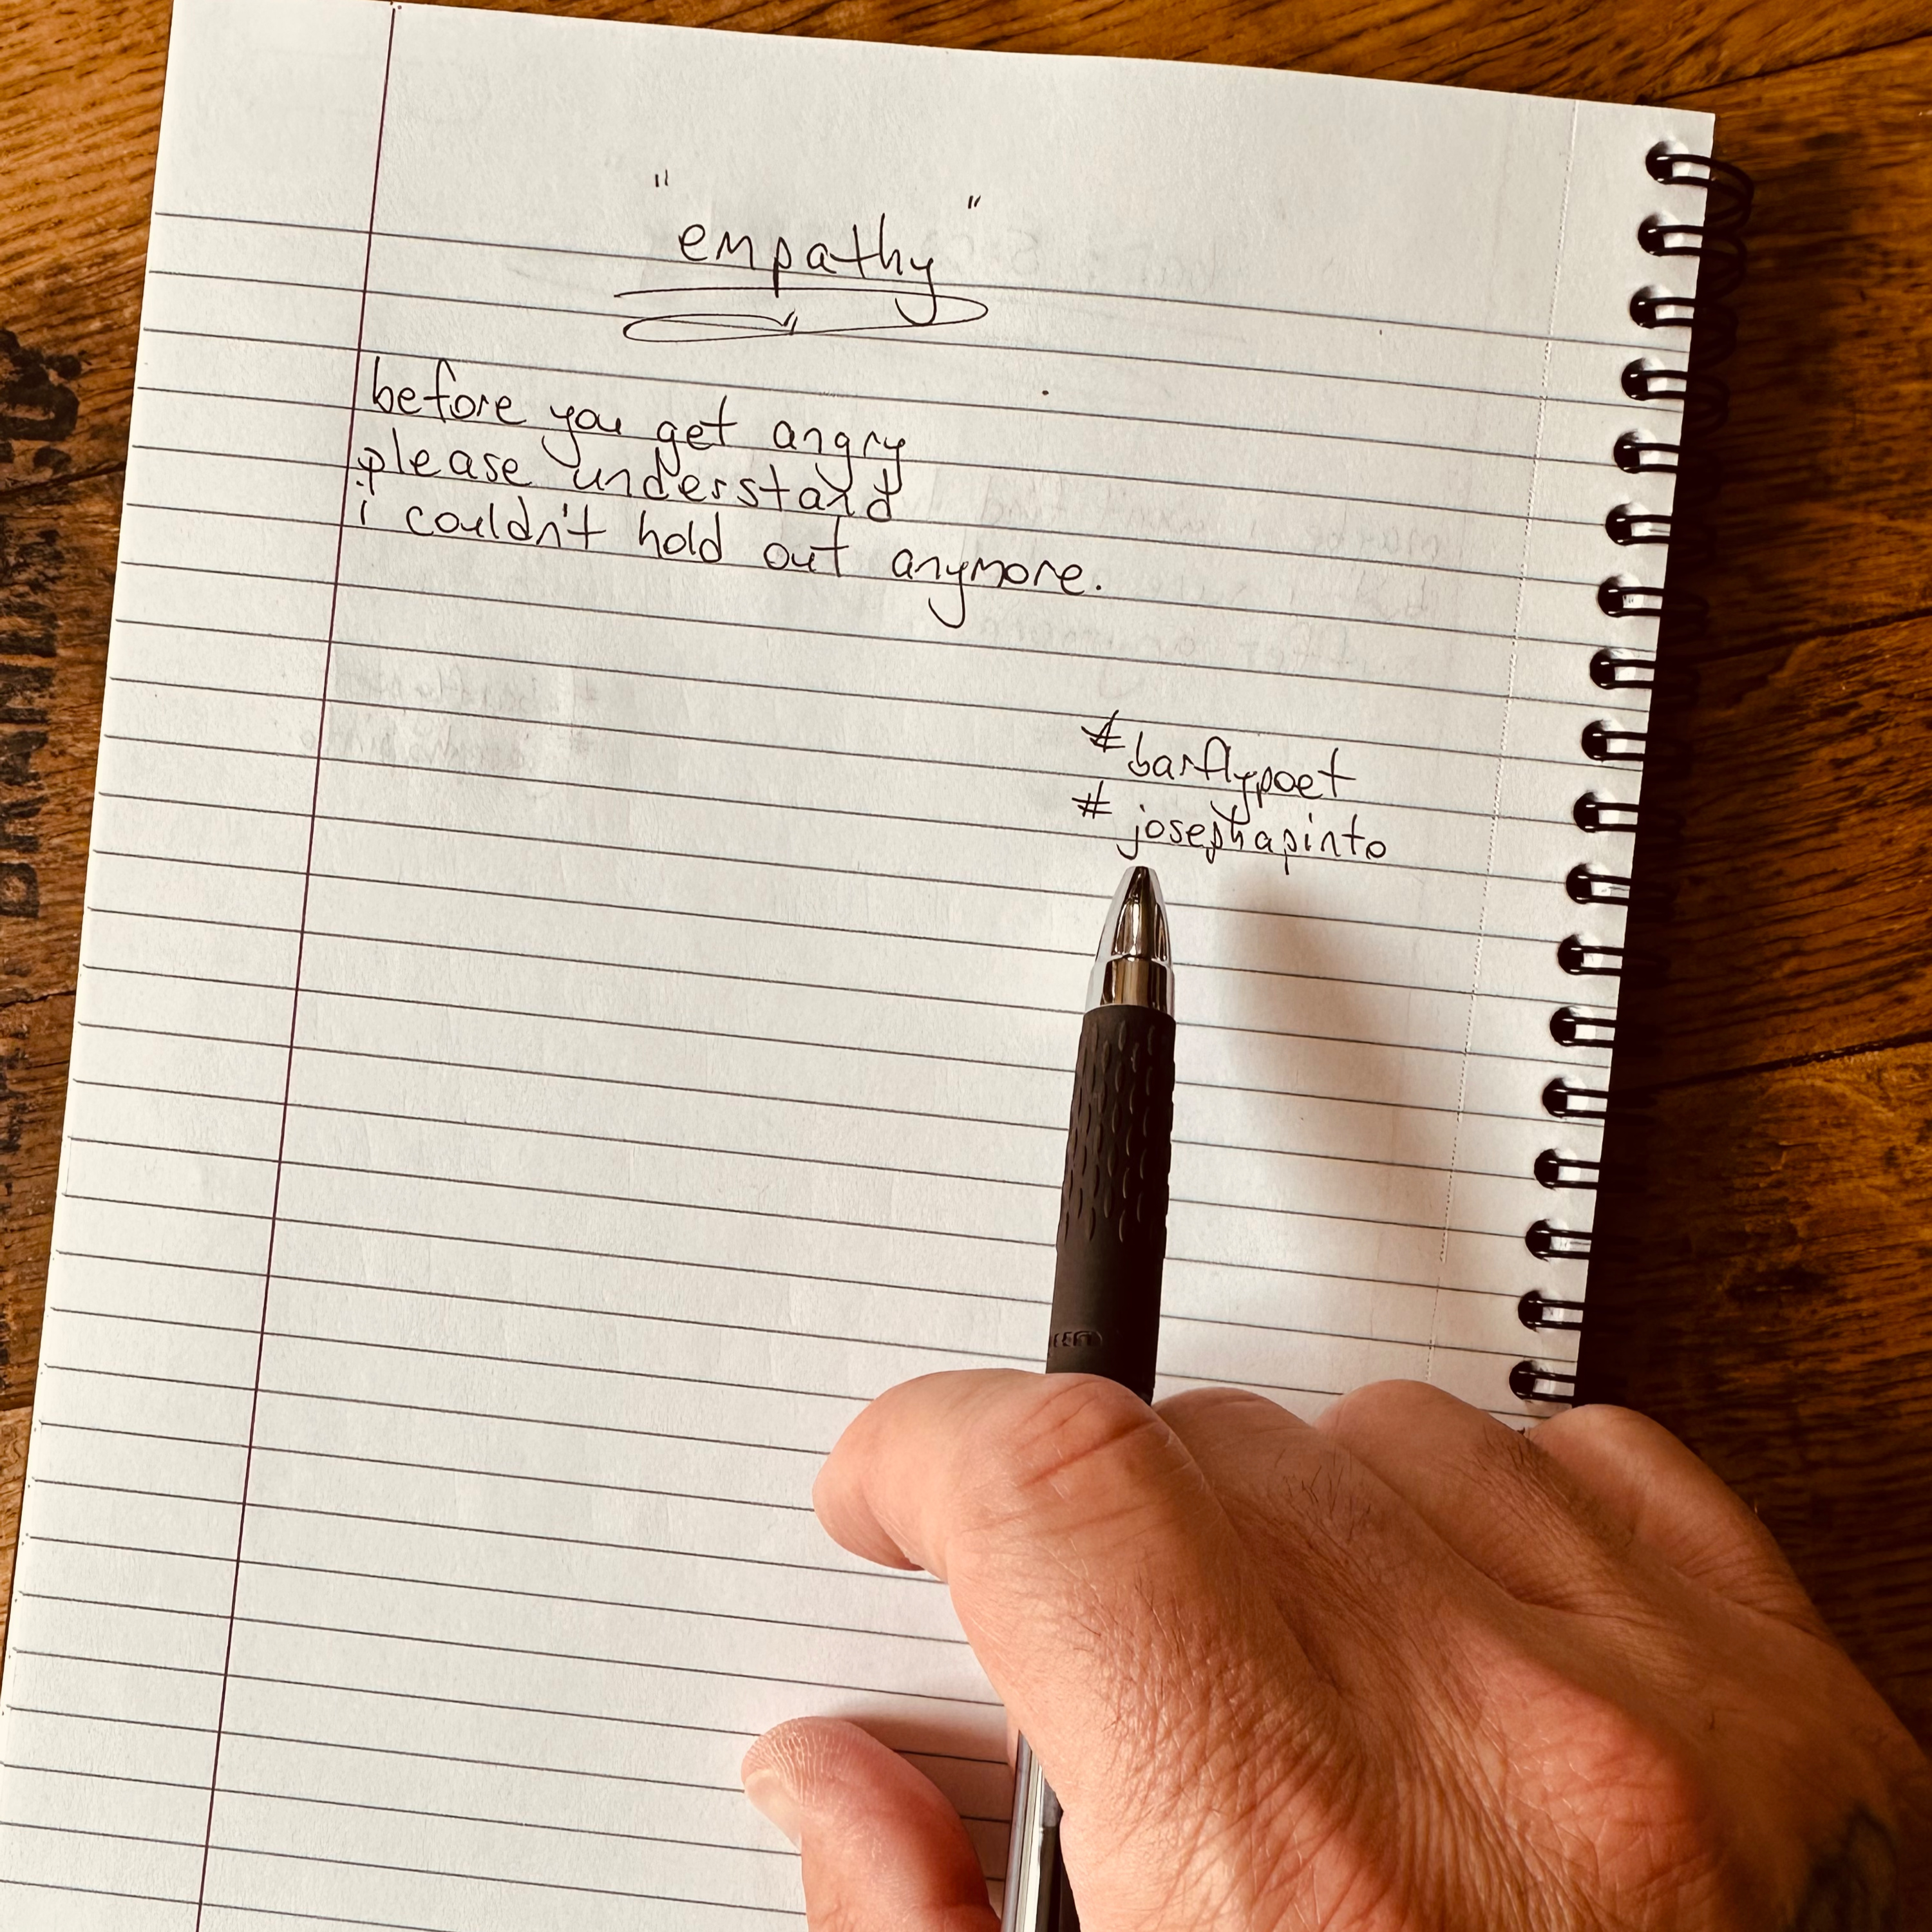 "empathy"
before you get angry
please understand
i couldn't hold out anymore.
#barflypoet
#josephapinto